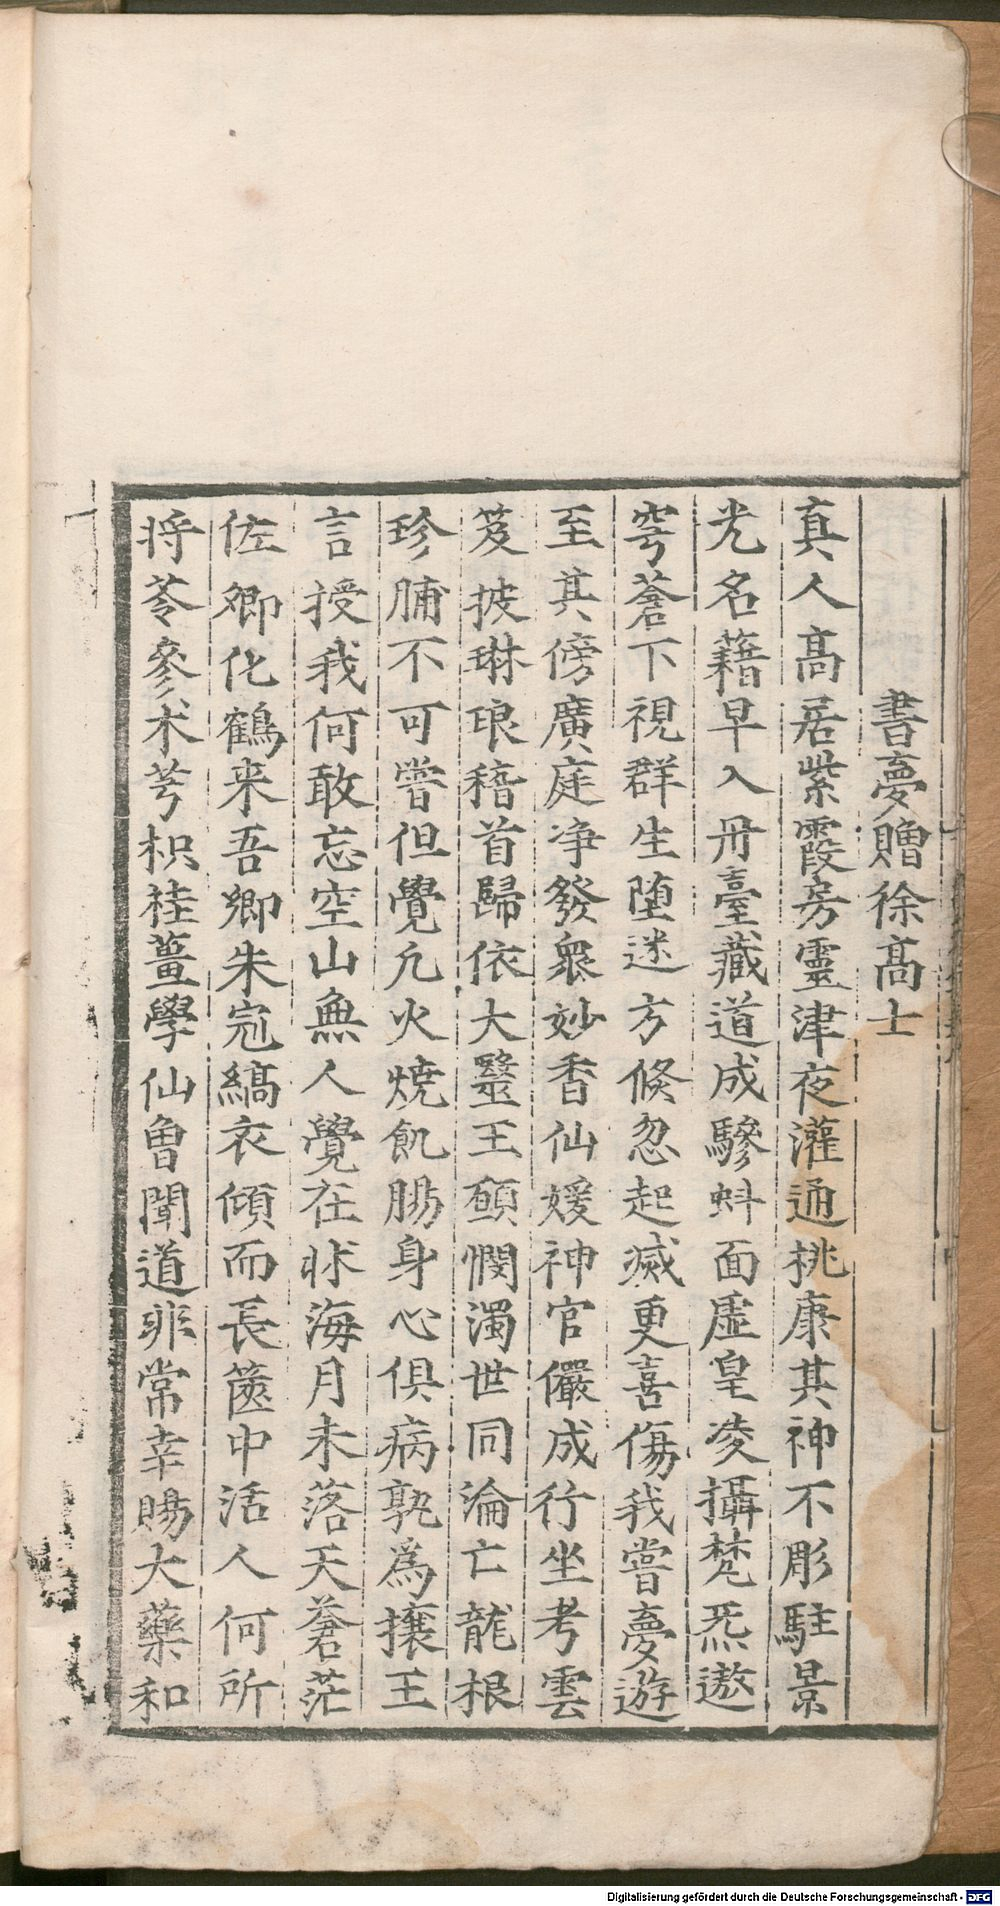 書夢贈徐髙士
真人髙居紫霞房靈津夜灌通桃康其神不彫駐景
光名藉早入丹臺藏道成驂㪷面虛皇凌攝梵炁遨
穹蒼下視群生堕迷方倐忽起滅更喜傷我嘗夢遊
至其傍廣庭净發衆妙香仙媛神官儼成行坐考雲
笈披琳琅稽首歸依大毉王願憫濁世同淪亡龍根
珍脯不可嘗但覺九火燒飢腸身心俱病孰為攘王
言授我何敢忘空山無人覺在牀海月未落天蒼茫
佐卿化鶴来吾鄉朱冠縞衣傾而長篋中活人何所
将苓參术芎枳桂薑學仙曾聞道非常幸賜大藥和
Digitalisierung gefördert durch die Deutsche Forschungsgemeinschaft - DFG